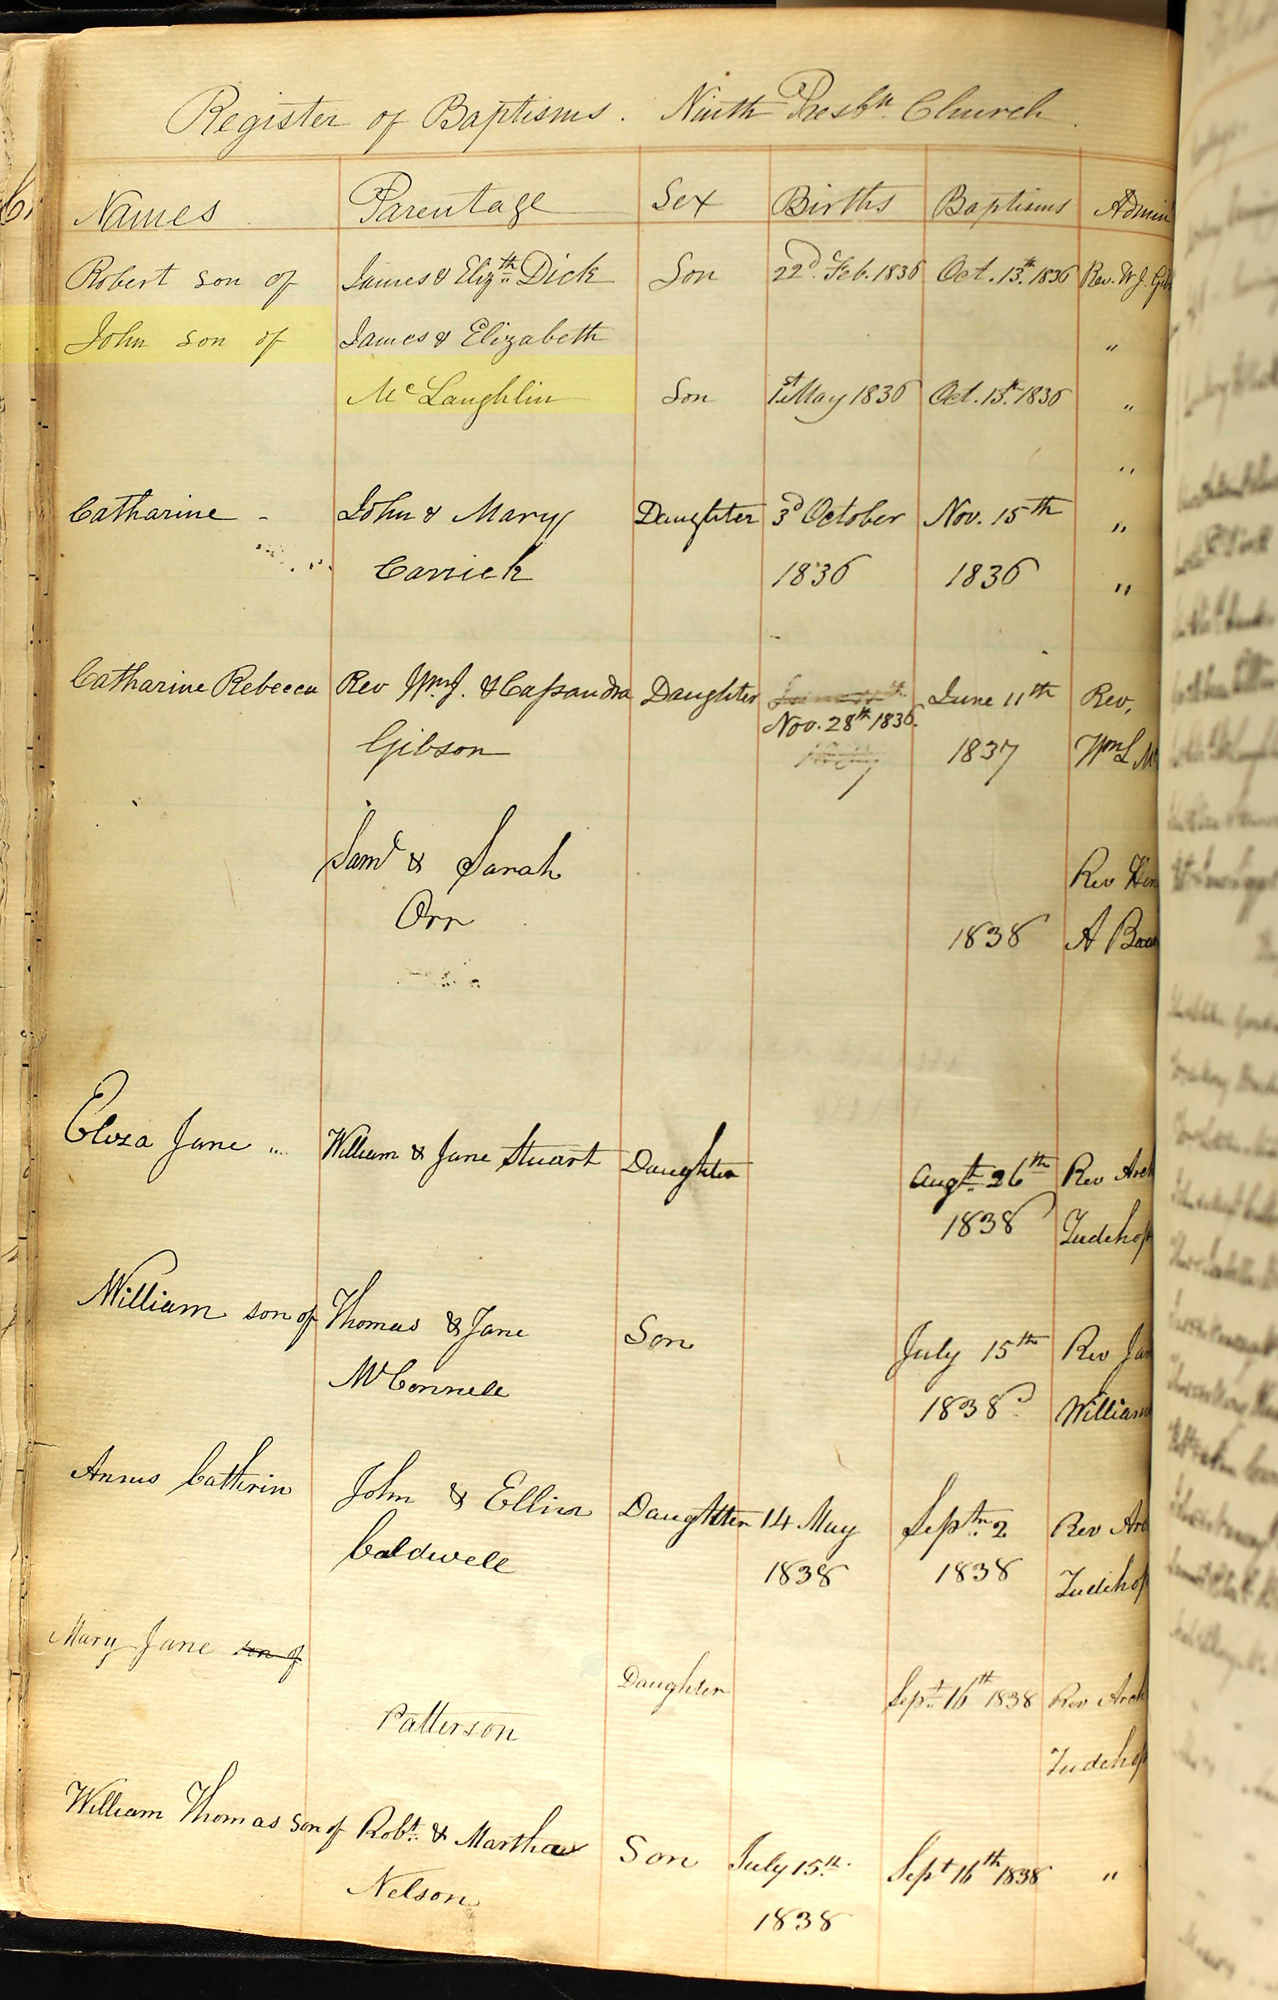 Register of Baptisms. Ninth Presbn. Church
Names Parentage Sex Births Baptisms Admin
Robert son of James & Elizth Dick Son 22d. Feb. 1836 Oct. 13th. 1836 Rev. W. J. Gib
John son of James & Elizabeth "
McLaughlin Son 1st May 1836 Oct. 13th. 1836 "
"
Catharine - John & Mary Daughter 3d October Nov. 15th "
Carrick 1836 1836 "
Catharine Rebecca Rev Wm J. & Cassandra Daughter June 11th Rev.
Nov. 28th 1836.
Gibson 1837 Wm L Mc
Saml & Sarah Rev Hen
Orr 1838 A Boa
Eliza Jane William & Jane Stuart Daughter Augt. 26th Rev Arch
1838 Tudehop
William son of Thomas & Jane Son July 15th Rev Jam
McConnell 1838 William
Annas Cathrin John & Elliza Daughtter 14 May Septr. 2 Rev Arc
Caldwell 1838 1838 Tudehop
Mary Jane son of Daughter Sept. 16th 1838 Rev Arch
Patterson Tudehop
William Thomas son of Robt. & Martha Son July 15th. Sept 16th 1838 "
Nelson 1838